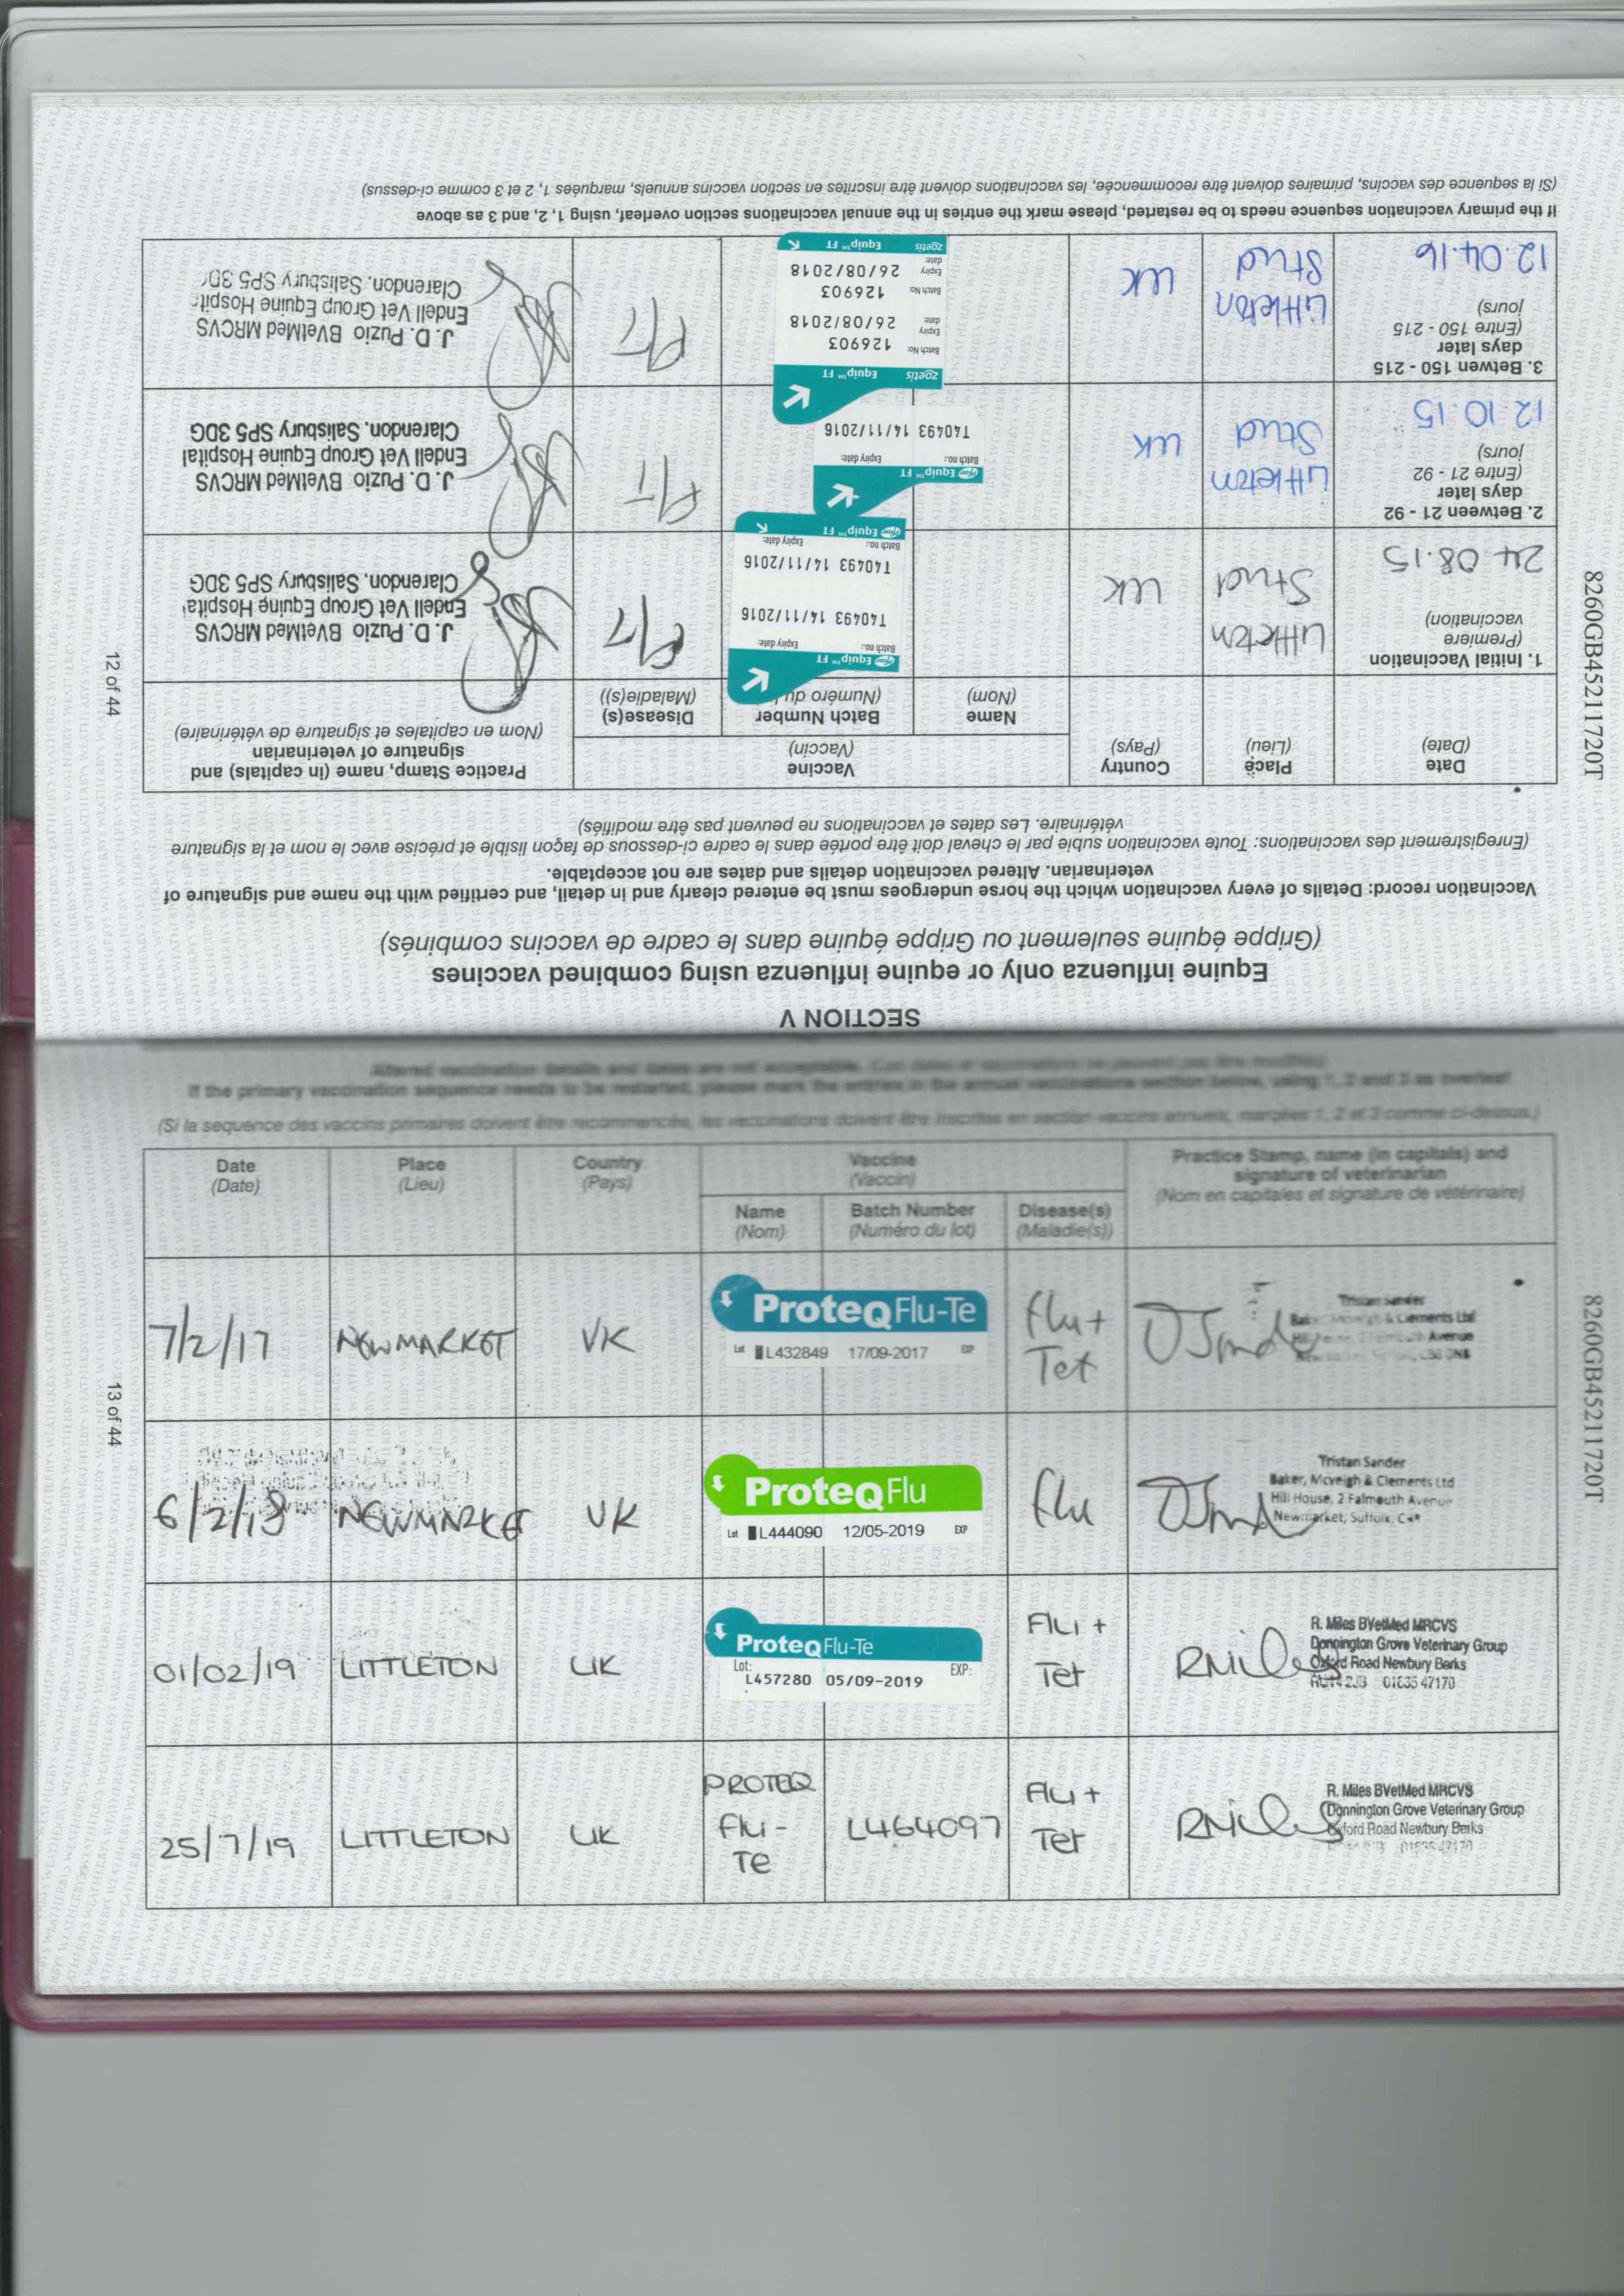 SECTION V
Equine influenza only or equine influenza using combined vaccines
(Grippe équine seulement ou Grippe équine dans le cadre de vaccins combinés)
Vaccination record: Details of every vaccination which the horse undergoes must be entered clearly and in detail, and certified with the name and signature of
veterinarian. Altered vaccination details and dates are not acceptable.
(Enregistrement des vaccinations: Toute vaccination subie par le cheval doit être portée dans le cadre ci-dessous de façon lisible et précise avec le nom et la signature
vétérinaire. Les dates et vaccinations ne peuvent pas être modifiés)
Date
(Date)
Place
(Lieu)
Country
(Pays)
Vaccine
(Vaccin)
Name
(Nom)
Batch Number
(Numéro du
Disease(s)
(Maladie(s))
Practice Stamp, name (in capitals) and
signature of veterinarian
(Nom en capitales et signature de vétérinaire)
1. Initial Vaccination
(Première
vaccination)
24.08.15
Littleton
Stud
UK
Equip™ FT
Batch no.: Expiry date:
T40493 14/11/2016
T40493 14/11/2016
Batch no.: Expiry date:
Equip™ FT
F/T
J. D. Puzio BVetMed MRCVS
Endell Vet Group Equine Hospital
Clarendon, Salisbury SP5 3DG
2. Between 21 - 92
days later
(Entre 21 - 92
jours)
12.10.15
Littleton
Stud
UK
Equip™ FT
Batch no.: Expiry date:
T40493 14/11/2016
F/T
J. D. Puzio BVetMed MRCVS
Endell Vet Group Equine Hospital
Clarendon, Salisbury SP5 3DG
3. Betwen 150 - 215
days later
(Entre 150 - 215
jours)
12.04.16
Littleton
Stud
UK
zoetis Equip™ FT
Batch No: 126903
Expiry date: 26/08/2018
Batch No: 126903
Expiry date: 26/08/2018
zoetis Equip™ FT
F/T
J. D. Puzio BVetMed MRCVS
Endell Vet Group Equine Hospit
Clarendon, Salisbury SP5 3D
If the primary vaccination sequence needs to be restarted, please mark the entries in the annual vaccinations section overleaf, using 1, 2, and 3 as above
(Si la sequence des vaccins, primaires doivent être recommencée, les vaccinations doivent être inscrites en section vaccins annuels, marquées 1, 2 et 3 comme ci-dessus)
12 of 44
8260GB45211720T
If the primary vaccination sequence needs to be restarted, please mark the entries in the annual vaccinations section below, using 1, 2 and 3 as overleaf
(Si la sequence des vaccins primaires doivent être recommencée, les vaccinations doivent être inscrites en section vaccins annuels, marqées 1, 2 et 3 comme ci-dessus.)
Date
(Date)
Place
(Lieu)
Country
(Pays)
Vaccine
(Vaccin)
Name
(Nom)
Batch Number
(Numéro du lot)
Disease(s)
(Maladie(s))
Practice Stamp, name (in capitals) and
signature of veterinarian
(Nom en capitales et signature de vétérinaire)
7/2/17
NEWMARKET
UK
ProteqFlu-Te
Lot L432849 17/09-2017 EXP
Flu +
Tet
Tristan Sander
Clements Ltd
Avenue
6/2/18
NEWMARKET
UK
ProteqFlu
Lot L444090 12/05-2019 EXP
Flu
Tristan Sander
Baker, Mcveigh & Clements Ltd
Hill House, 2 Falmouth Avenue
Newmarket, Suffolk,
01/02/19
LITTLETON
UK
ProteqFlu-Te
Lot: EXP:
L457280 05/09-2019
Flu +
Tet
RMiles
R. Miles BVetMed MRCVS
Donnington Grove Veterinary Group
Oxford Road Newbury Berks
01635 47170
25/7/19
LITTLETON
UK
PROTEQ
Flu-
Te
L464097
Flu +
Tet
RMiles
R. Miles BVetMed MRCVS
Donnington Grove Veterinary Group
Oxford Road Newbury Berks
01635 47170
13 of 44
8260GB45211720T